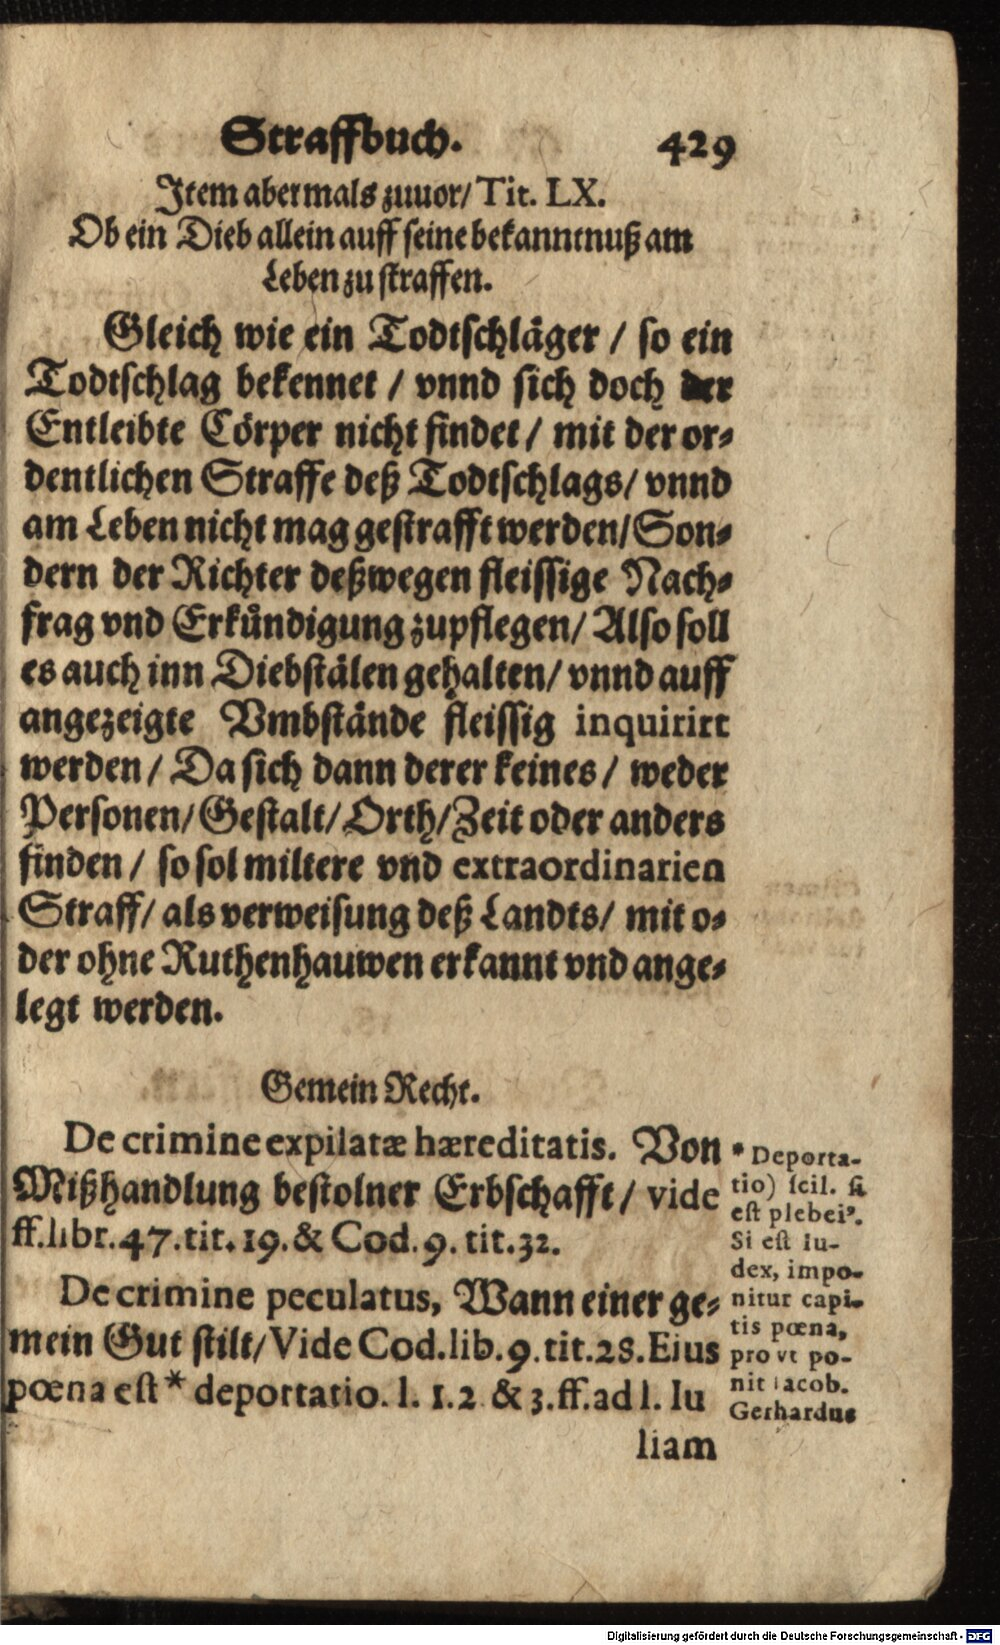 Straffbuch. 429
Item abermals zuuor/ Tit. LX.
Ob ein Dieb allein auff seine bekanntnuß am
Leben zu straffen.
Gleich wie ein Todtschläger / so ein
Todtschlag bekennet / vnnd sich doch der
Entleibte Cörper nicht findet / mit der or-
dentlichen Straffe deß Todtschlags/ vnnd
am Leben nicht mag gestrafft werden/ Son-
dern der Richter deßwegen fleissige Nach-
frag vnd Erkůndigung zupflegen/ Also soll
es auch inn Diebstälen gehalten/ vnnd auff
angezeigte Vmbstände fleissig inquirirt
werden / Da sich dann derer keines / weder
Personen/ Gestalt/ Orth/ Zeit oder anders
finden / so sol miltere vnd extraordinarien
Straff/ als verweisung deß Landts/ mit o-
der ohne Ruthenhauwen erkannt vnd ange-
legt werden.
Gemein Recht.
De crimine expilatæ hæreditatis. Von
Mißhandlung bestolner Erbschafft / vide
ff. libr. 47. tit. 19. & Cod. 9. tit. 32.
De crimine peculatus, Wann einer ge-
mein Gut stilt/ Vide Cod. lib. 9. tit. 28. Eius
pœna est * deportatio. l. 1. 2 & 3. ff. ad l. Iu
liam
* Deporta-
tio) scil. si
est plebei⁹.
Si est Iu-
dex, impo-
nitur capi-
tis pœna,
pro vt po-
nit Iacob.
Gerhardus
Digitalisierung gefördert durch die Deutsche Forschungsgemeinschaft - DFG